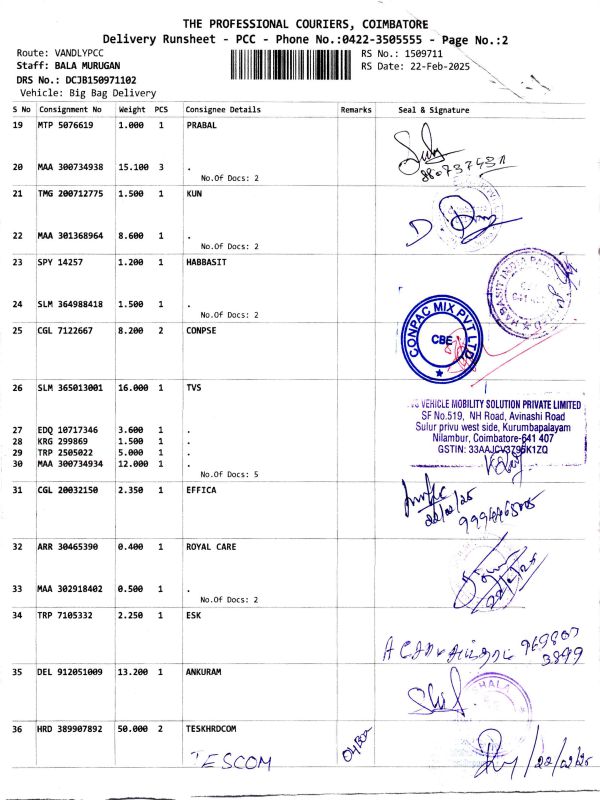 THE PROFESSIONAL COURIERS, COIMBATORE
Delivery Runsheet - PCC - Phone No.:0422-3505555 - Page No.:2
Route: VANDLYPCC RS No.: 1509711
Staff: BALA MURUGAN RS Date: 22-Feb-2025
DRS No.: DCJB150971102
Vehicle: Big Bag Delivery
S No Consignment No Weight PCS Consignee Details Remarks Seal & Signature
19 MTP 5076619 1.000 1 PRABAL
20 MAA 300734938 15.100 3 .
No.Of Docs: 2
21 TMG 200712775 1.500 1 KUN
22 MAA 301368964 8.600 1 .
No.Of Docs: 2
23 SPY 14257 1.200 1 HABBASIT
24 SLM 364988418 1.500 1 .
No.Of Docs: 2
25 CGL 7122667 8.200 2 CONPSE
CONPAC MIX PVT LTD
CBE
26 SLM 365013001 16.000 1 TVS
VEHICLE MOBILITY SOLUTION PRIVATE LIMITED
SF No.519, NH Road, Avinashi Road
Sulur privu west side, Kurumbapalayam
Nilambur, Coimbatore-641 407
27 EDQ 10717346 3.600 1 .
28 KRG 299869 1.500 1 .
29 TRP 2505022 5.000 1 .
30 MAA 300734934 12.000 1 .
No.Of Docs: 5
31 CGL 20032150 2.350 1 EFFICA
22/02/25
32 ARR 30465390 0.400 1 ROYAL CARE
33 MAA 302918402 0.500 1 .
No.Of Docs: 2
34 TRP 7105332 2.250 1 ESK
35 DEL 912051009 13.200 1 ANKURAM
36 HRD 389907892 50.000 2 TESKHRDCOM
TESCOM
22/02/25